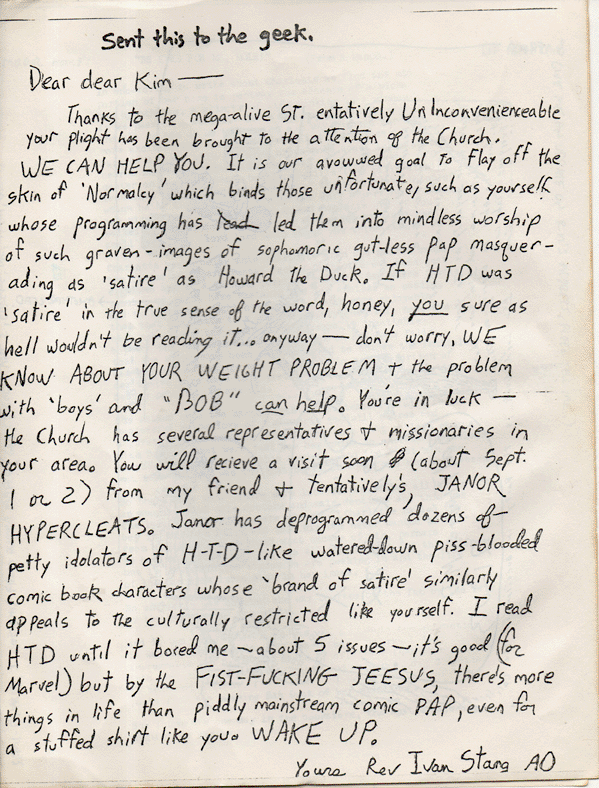 Sent this to the geek.
Dear dear Kim —
Thanks to the mega-alive ST. entatively UnInconvenienceable
your plight has been brought to the attention of the Church.
WE CAN HELP YOU. It is our avowwed goal to flay off the
skin of 'Normalcy' which binds those unfortunate, such as yourself
whose programming has lead led them into mindless worship
of such graven-images of sophomoric gut-less pap masquer-
ading as 'satire' as Howard the Duck. If HTD was
'satire' in the true sense of the word, honey, you sure as
hell wouldn't be reading it... anyway — don't worry, WE
KNOW ABOUT YOUR WEIGHT PROBLEM + the problem
with 'boys' and "BOB" can help. You're in luck —
the Church has several representatives + missionaries in
your area. You will recieve a visit soon (about Sept.
1 or 2) from my friend + tentatively's, JANOR
HYPERCLEATS. Janor has deprogrammed dozens of
petty idolators of H-T-D-like watered-down piss-blooded
comic book characters whose 'brand of satire' similarly
appeals to the culturally restricted like yourself. I read
HTD until it bored me — about 5 issues — it's good (for
Marvel) but by the FIST-FUCKING JEESUS, there's more
things in life than piddly mainstream comic PAP, even for
a stuffed shirt like you. WAKE UP.
Yours Rev Ivan Stang AO